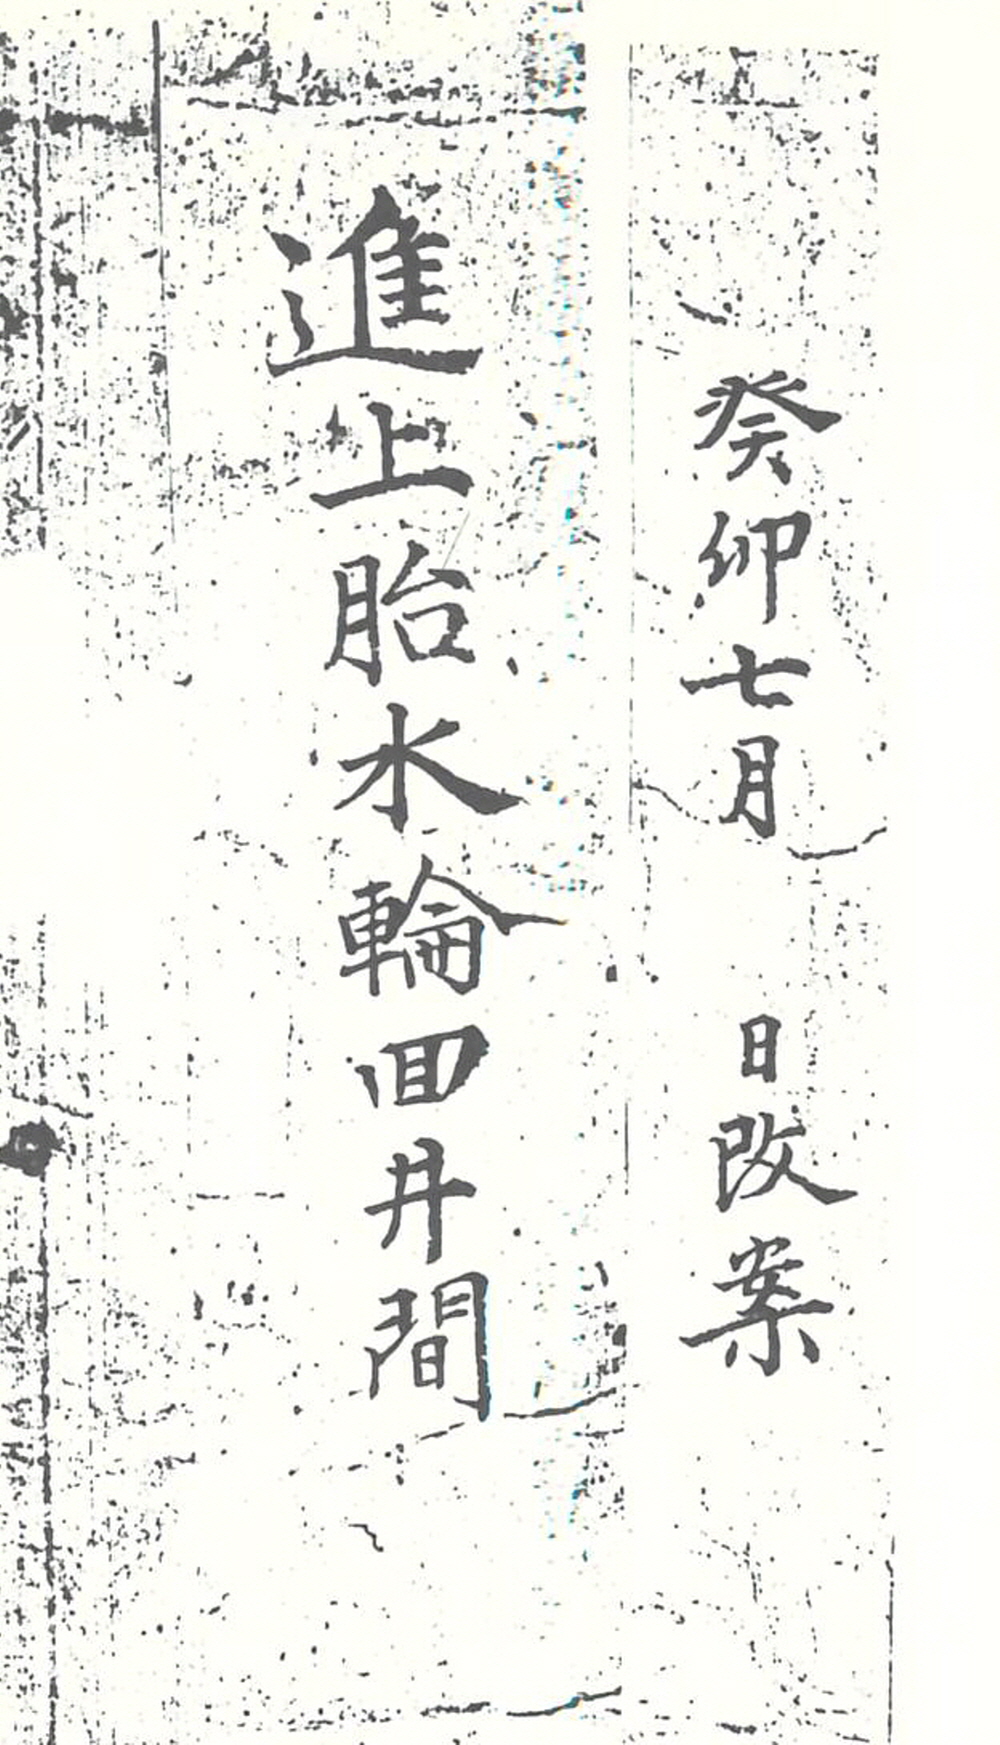 癸卯七月 日改案
進上胎水輪回井間